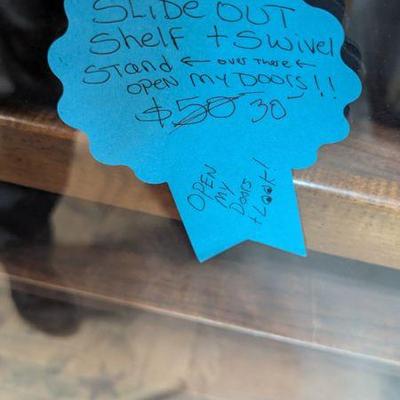 SLIDE OUT
Shelf + Swivel
Stand ← over there ←
OPEN My DOORS!!
$50 30
OPEN
My
Doors
+ Look!